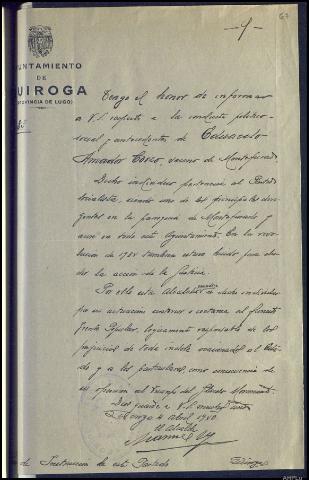 -1-
67
AYUNTAMIENTO
DE
QUIROGA
(PROVINCIA DE LUGO)
Tengo el honor de informar
a V.S. respecto a la conducta político-
social y antecedentes de
Amador vecino de Montefurado.
Dicho individuo pertenecía al Partido
Socialista, siendo uno de los principales diri-
gentes en la parroquia de Montefurado y
aun en todo este Ayuntamiento. En la revo-
lución de 1934 también estuvo huido para elu-
dir la acción de la Justicia.
Por ello esta Alcaldía a dicho individuo
por su actuación contraria al
Frente Popular, logicamente responsable de los
perjuicios de toda indole ocasionados al Esta-
do y a los particulares, como consecuencia de
su oposición al Triunfo del Glorioso Movimiento.
Dios guarde a V.S. muchos años
Quiroga 4 abril 1940
El Alcalde
Manuel
de Instrucción de este Partido
Quiroga